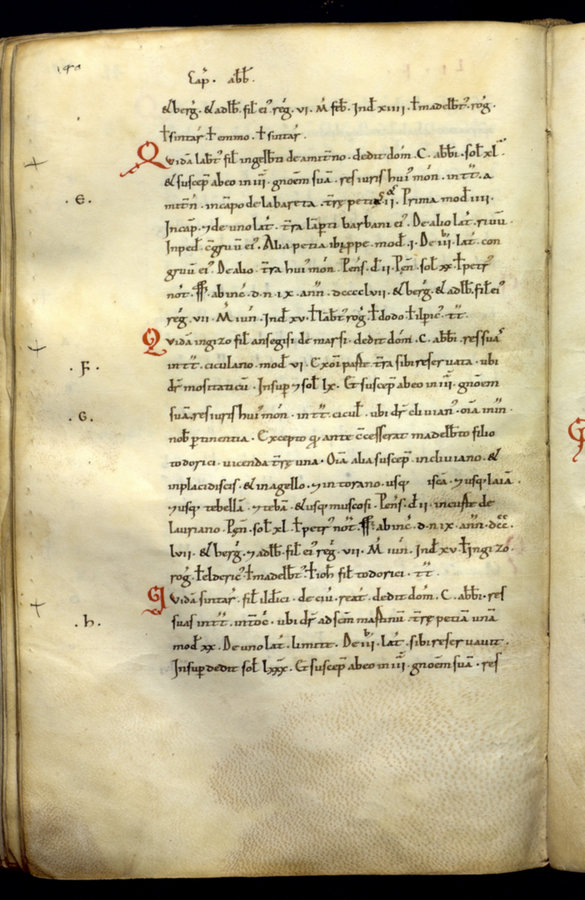 Cap̄. abb̄.
& berg̃. & adlb̃. fil̃ ei' rẽg. VI. M̃ feb̃. Ind̃ XIIII. t̃ madelb̃t' rog̃.
t̃ sintar̃. t̃ emmo. t̃ sintar̃.
Quidã lab̃t' fil̃ ingelb̃ti de amit̃no. dedit dom̃. C. abb̃i. sol̃ XL.
& suscep̃ ab eo in III. gñoem suã. res iuris hui' moñ. in t̃t. a
.E.
mit̃ñ. in cãpo de labareta. t̃rẹ petiã II. Prima mod̃ IIII.
In cap̃. ⁊ de uno lat̃. t̃ra lãp̃ti barbani ei'. De alio lat̃. riuũ.
In ped̃. cg̃ruũ ei'. Alia petia ibi p̃pe. mod̃. I. De III. lat̃. con
gruũ ei'. De alio. t̃ra hui' moñ. Peñs. d̃ II. Pẹñ. sol̃ XX. t̃ petr'
not̃. ab inc̃. d. n. IX. anñ. dcccc lvii. & berg̃. & adlb̃. fil̃ ei'
rẽg. VII. M̃ iuñ. Ind̃ XV. t̃ lab̃t' rog̃. t̃ dodo. t̃ ilpic'. t̃t.
Quidã ingizo fil̃ ansegisi de marsi. dedit dom̃. C. abb̃i. res suas
in t̃t. ciculano. mod̃ VI. Exõi parte t̃ra sibi reseruata. ubi
.F.
dr̃ mositaticũ. Insup̃ ⁊ sol̃ LX. Et suscep̃ ab eo in III. gñoem
suã. res iuris hui' moñ. in t̃t. cicul̃. ubi dr̃ cliuian'. oĩa in iñ.
.G.
nob̃ p̃tinentia. Excepto qd̃ ante c̃cesserat madelb̃to filio
todorici. uicenda t̃rẹ una. Oĩa alia suscep̃ in cliuiano. &
in placidiscis. & in agello. ⁊ in torano. usq; isca. ⁊ usq; laiã.
⁊ usq; tebellã. ⁊ tebã. & usq; muscosi. Peñs. d̃ II. in curte de
lauriano. Pẹñ. sol̃ XL. t̃ petr' not̃. ab inc̃. d. n. IX. anñ. dccc.
lvii. & berg̃. ⁊ adlb̃. fil̃ ei' rẽg. VII. M̃ iuñ. Ind̃ XV. t̃ ingizo.
rog̃. t̃ elderic'. t̃ madelb̃t'. t̃ ioh̃ fil̃ todorici. t̃t.
Quidã sintar̃. fil̃ ildici. de ciũ. reat̃. dedit dom̃. C. abb̃i. res
suas in t̃t. int̃oc̃. ubi dr̃ ad sc̃m martinũ. t̃rẹ petiã unã
.h.
mod̃ XX. De uno lat̃. limite. De III. lat̃. sibi reseruauit.
Insup̃ dedit sol̃ LXXX. Et suscep̃ ab eo in III. gñoem suã. res